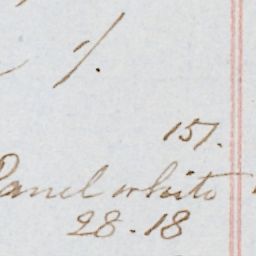 1/.
151.
Panel white
28.18